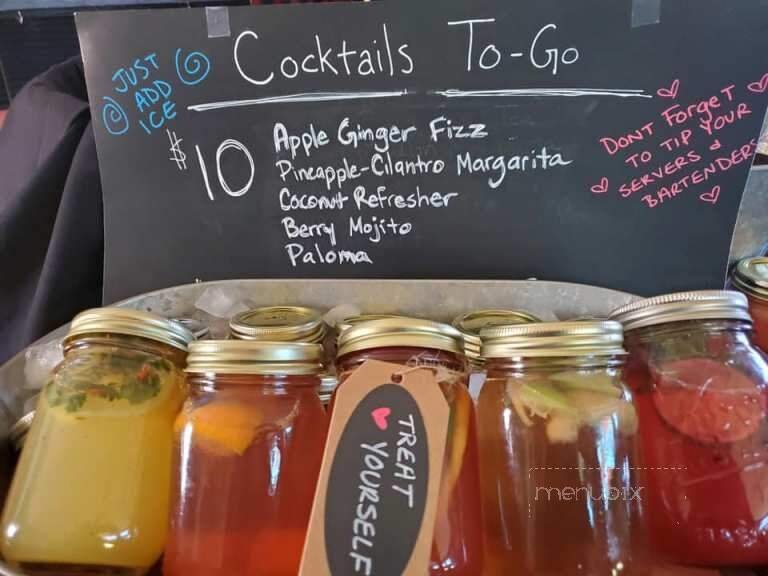 Cocktails To-Go
JUST
ADD
ICE
$10
Apple Ginger Fizz
Pineapple-Cilantro Margarita
Coconut Refresher
Berry Mojito
Paloma
DONT Forget
TO TIP YOUR
SERVERS &
BARTENDERS
TREAT
YOURSELF
menupix